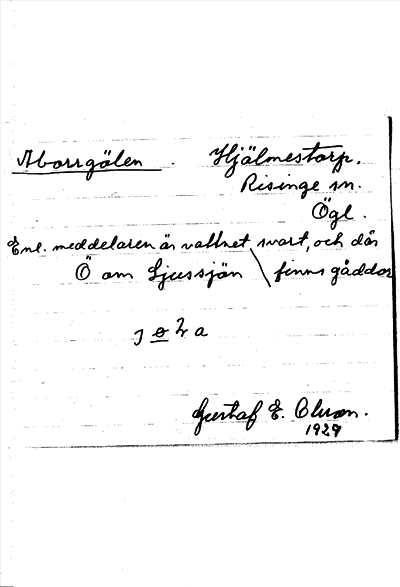 Aborrgölen. Hjälmestorp.
Risinge sn.
Ögl.
Enl. meddelaren är vattnet svart, och där
Ö om Ljussjön \ finns gäddor
Gustaf E. Olsson.
1929